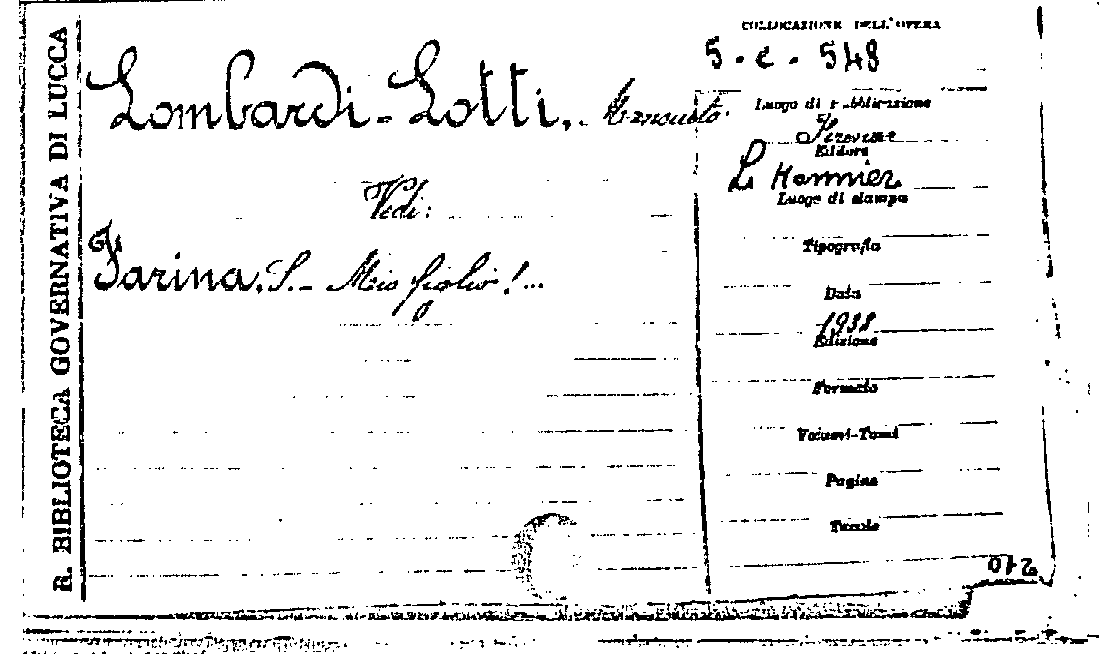 R. BIBLIOTECA GOVERNATIVA DI LUCCA
COLLOCAZIONE DELL'OPERA
5 - C - 548
Lombardi-Lotti, Mansueto.
Vedi:
Farina, S. - Mio figlio!...
Luogo di pubblicazione
Firenze
Editore
Le Monnier
Luogo di stampa
Tipografia
Data
1938
Edizione
Formato
Volumi-Tomi
Pagine
Tavole